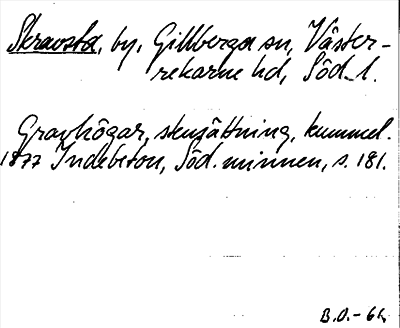 Skravsta, by, Gillberga sn, Väster-
rekarne hd, Söd. l.
Gravhögar, stensättning, kummel.
1877 Indebetou, Söd. minnen, s. 181.
B.O.-61.